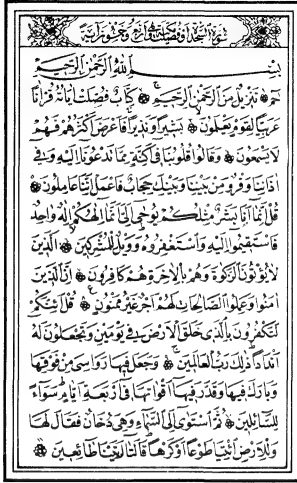 سورة السجدة وفصلت اربع وخمسون آية
بسم الله الرحمن الرحيم
حم تنزيل من الرحمن الرحيم كتاب فصلت اياته قرانا
عربيا لقوم يعلمون بشيرا ونذيرا فاعرض اكثرهم فهم
لا يسمعون وقالوا قلوبنا في اكنة مما تدعونا اليه وفي
اذاننا وقر ومن بيننا وبينك حجاب فاعمل اننا عاملون
قل انما انا بشر مثلكم يوحى الي انما الهكم اله واحد
فاستقيموا اليه واستغفروه وويل للمشركين الذين
لا يؤتون الزكوة وهم بالاخرة هم كافرون ان الذين
امنوا وعملوا الصالحات لهم اجر غير ممنون قل ائنكم
لتكفرون بالذي خلق الارض في يومين وتجعلون له
اندادا ذلك رب العالمين وجعل فيها رواسي من فوقها
وبارك فيها وقدر فيها اقواتها في اربعة ايام سواء
للسائلين ثم استوى الى السماء وهي دخان فقال لها
وللارض ائتيا طوعا او كرها قالتا اتينا طائعين